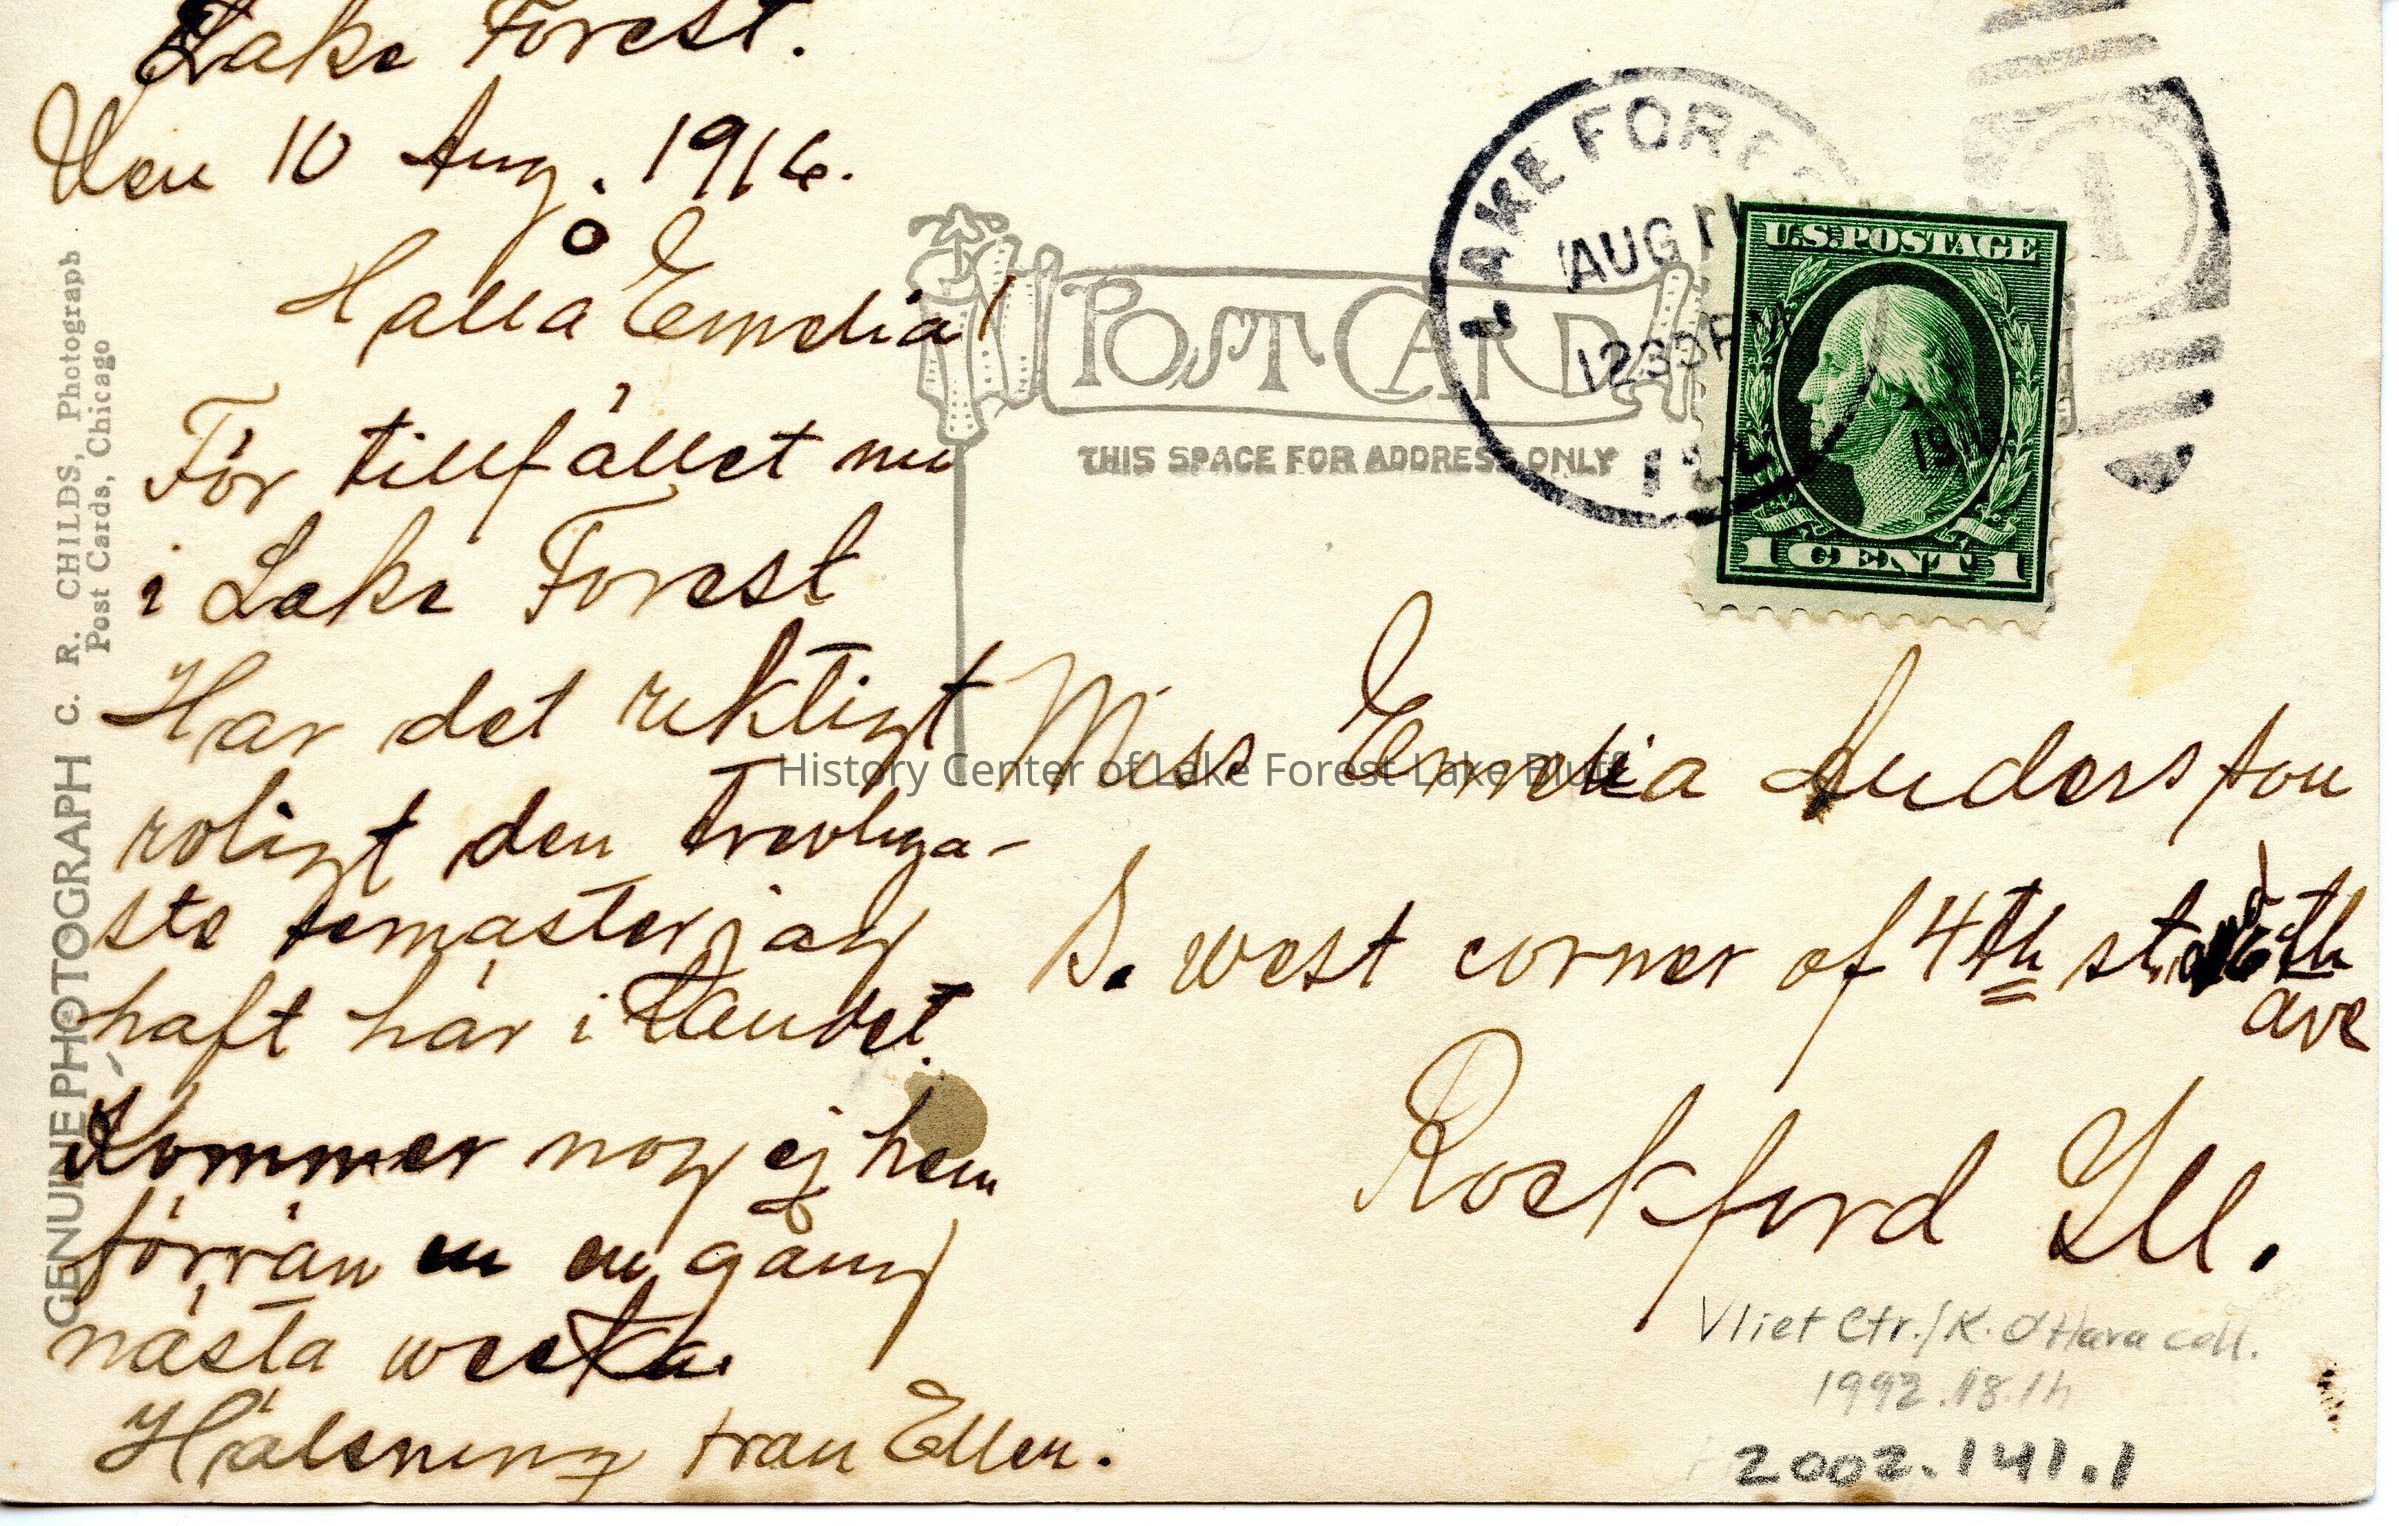 Lake Forest.
Den 10 Aug. 1916.
Hallå Emelia!
För tillfället nu
i Lake Forest
Har det riktigt
roligt den trevliga-
ste semäster jag
haft här i landet.
Kommer nog ej hem
förrän en en gång
nästa weeka.
Hälsning från Ellen.
GENUINE PHOTOGRAPH C. R. CHILDS, Photograph
Post Cards, Chicago
POST CARD
THIS SPACE FOR ADDRESS ONLY
LAKE FOREST
AUG 11
1230P
U.S. POSTAGE
1 CENT 1
Miss Emelia Andersson
S. west corner of 4th st. 6th
ave
Rockford Ill.
History Center of Lake Forest-Lake Bluff
Vliet Ctr./K. O'Hara coll.
1992.18.1h
2002.141.1